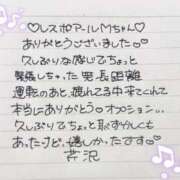 ♡レスポアールMちゃん♡
ありがとうございました○
久しぶりな感じでちょっと
緊張しちゃった 男 長距離
運転のあと、疲れてる中来てくれて
本当にありがとう◎オプション...♡
久しぶりでちょっと恥ずかしくも
あったけど、嬉しかったです◎
芹沢